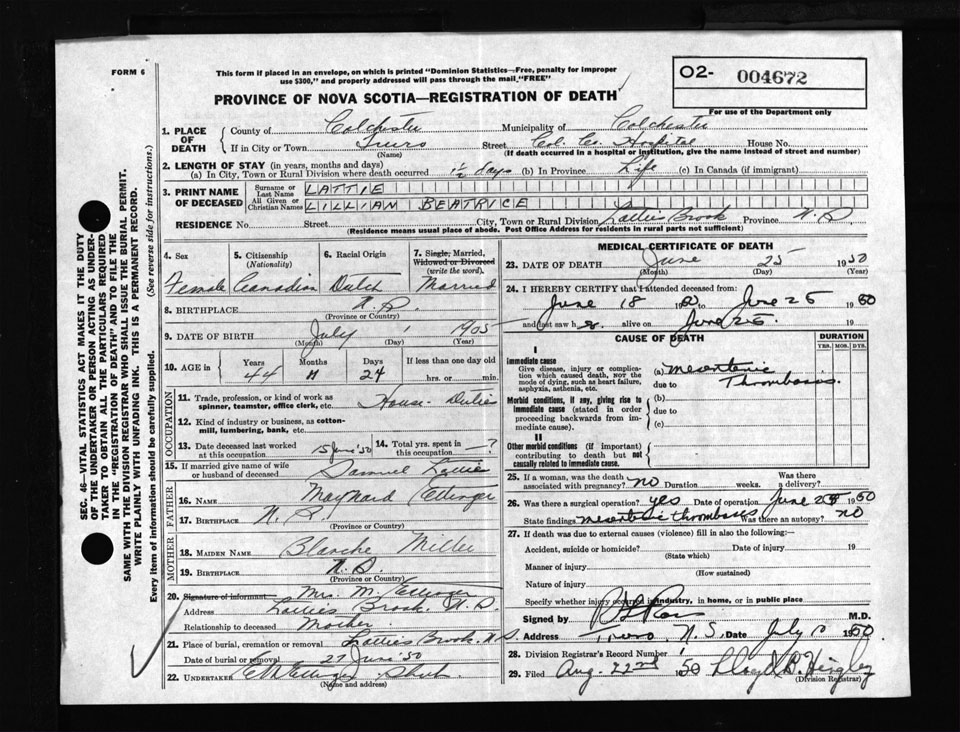 FORM 6
This form if placed in an envelope, on which is printed "Dominion Statistics—Free, penalty for improper
use $300," and properly addressed will pass through the mail, "FREE"
O2- 004672
For use of the Department only
PROVINCE OF NOVA SCOTIA—REGISTRATION OF DEATH
SEC. 46—VITAL STATISTICS ACT MAKES IT THE DUTY
OF THE UNDERTAKER OR PERSON ACTING AS UNDER-
TAKER TO OBTAIN ALL THE PARTICULARS REQUIRED
IN THE "REGISTRATION OF DEATH" AND TO FILE THE
SAME WITH THE DIVISION REGISTRAR WHO SHALL ISSUE THE BURIAL PERMIT.
WRITE PLAINLY WITH UNFADING INK. THIS IS A PERMANENT RECORD.
Every item of information should be carefully supplied. (See reverse side for instructions.)
1. PLACE OF DEATH
County of Colchester Municipality of Colchester
If in City or Town Truro Street Col. Co. Hospital House No.
(Name) (If death occurred in a hospital or institution, give the name instead of street and number)
2. LENGTH OF STAY (in years, months and days)
(a) In City, Town or Rural Division where death occurred 1½ days (b) In Province Life (c) In Canada (if immigrant)
3. PRINT NAME OF DECEASED
Surname or Last Name LATTIE
All Given or Christian Names LILLIAN BEATRICE
RESIDENCE No. Street City, Town or Rural Division Latties Brook Province N.S.
(Residence means usual place of abode. Post Office Address for residents in rural parts not sufficient)
4. Sex 5. Citizenship (Nationality) 6. Racial Origin 7. Single, Married, Widowed or Divorced (write the word)
Female Canadian Dutch Married
8. BIRTHPLACE N.S.
(Province or Country)
9. DATE OF BIRTH July 1905
(Month) (Day) (Year)
10. AGE in Years Months Days If less than one day old
44 11 24 hrs. or min.
OCCUPATION
11. Trade, profession, or kind of work as spinner, teamster, office clerk, etc. House-Duties
12. Kind of industry or business, as cotton-mill, lumbering, bank, etc.
13. Date deceased last worked at this occupation 15 June '50 14. Total yrs. spent in this occupation ?
15. If married give name of wife or husband of deceased Samuel Lattie
FATHER
16. NAME Maynard Ettinger
17. BIRTHPLACE N.S.
(Province or Country)
MOTHER
18. MAIDEN NAME Blanche Miller
19. BIRTHPLACE N.S.
(Province or Country)
20. Signature of informant Mrs. M. Ettinger
Address Latties Brook, N.S.
Relationship to deceased Mother
21. Place of burial, cremation or removal Latties Brook, N.S.
Date of burial or removal 27 June '50
22. UNDERTAKER Ettinger Shub.
(Name and address)
MEDICAL CERTIFICATE OF DEATH
23. DATE OF DEATH June 25 1950
(Month) (Day) (Year)
24. I HEREBY CERTIFY that I attended deceased from:
June 18 1950 to June 25 1950
and last saw her alive on June 25 19
CAUSE OF DEATH DURATION
YRS. MOS. DYS.
I
Immediate cause
Give disease, injury or complication which caused death, NOT the mode of dying, such as heart failure, asphyxia, asthenia, etc.
(a) mesenteric
due to Thrombosis.
Morbid conditions, if any, giving rise to immediate cause (stated in order proceeding backwards from immediate cause).
(b)
due to
(c)
II
Other morbid conditions (if important) contributing to death but not causally related to immediate cause.
25. If a woman, was the death associated with pregnancy? no Duration weeks. Was there a delivery?
26. Was there a surgical operation? yes Date of operation June 1950
State findings mesenteric thrombosis Was there an autopsy? no
27. If death was due to external causes (violence) fill in also the following:—
Accident, suicide or homicide? Date of injury 19
(State which)
Manner of injury
(How sustained)
Nature of injury
Specify whether injury occurred in industry, in home, or in public place
Signed by M.D.
Address Truro, N.S. Date July 1950
28. Division Registrar's Record Number
29. Filed Aug. 22nd 50 Lloyd B. Hingley
(Division Registrar)